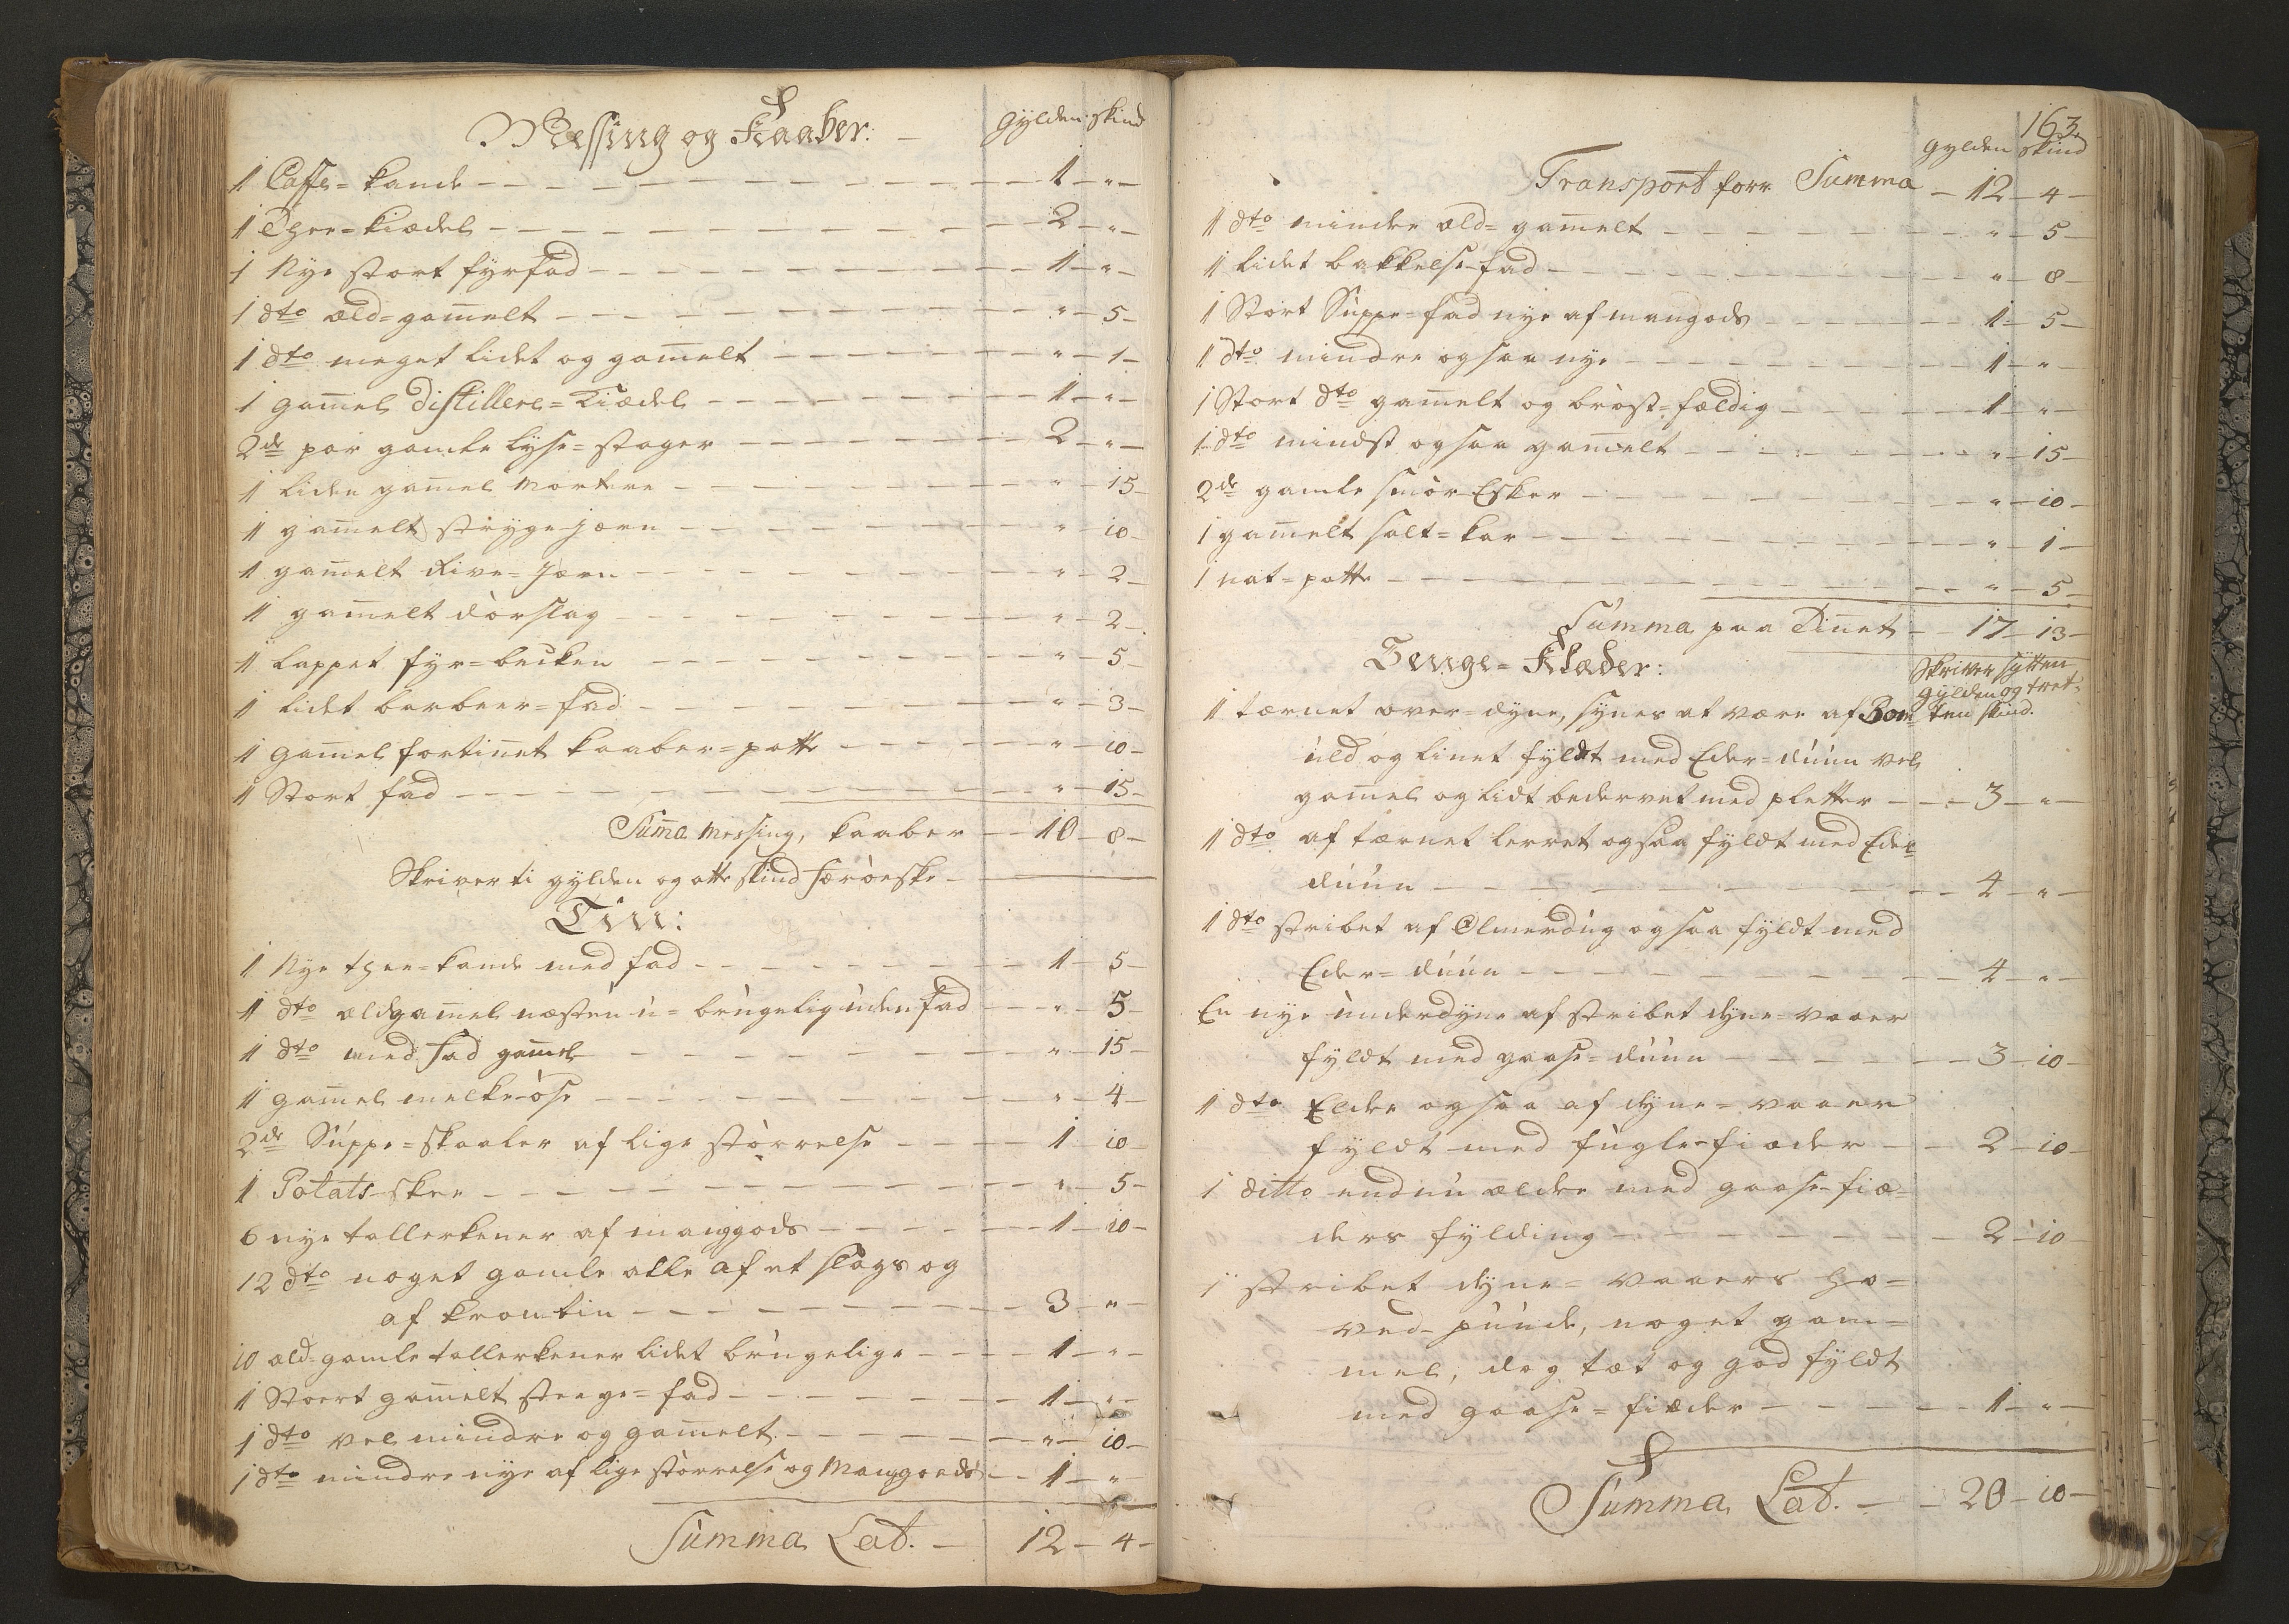 Messing og Kaaber: — gylden skind
1 Caffe=kande — 1 — " —
1 Thee=kiædel — 2 — " —
1 Nye stort fyrfad — 1 — " —
1 dto æld=gam̅elt — " — 5 —
1 dto meget lidet og gam̅elt — " — 1 —
1 gam̅el distillere=Kiædel — 1 — " —
2de par gamle lyse=stager — 2 — " —
1 liden gam̅el Mortere — " — 15 —
1 gam̅elt strygejærn — " — 10 —
1 gam̅elt Rive=Jærn — " — 2 —
1 gam̅elt dòrslag — " — 2 —
1 lappet fyr=becken — " — 5 —
1 lidet barbeer=fad — " — 3 —
1 gam̅el fortin̅et kaaber=potte — " — 10 —
1 Stort fad — " — 15 —
Sum̅a Messing, kaaber — 10 — 8 —
Skriver ti gylden og otte skind færòeske —
Tin:
1 Nye thee=kande med fad — 1 — 5 —
1 dto ældgam̅el næsten ù=brùgelig ùden fad — " — 5 —
1 dto med fad gam̅el — " — 15 —
1 gam̅el melke-òse — " — 4 —
2de Sùppe=skaaler af lige stòrrelse — 1 — 10 —
1 Potats-skee — " — 5 —
6 nye tallerkener af manggods — 1 — 10 —
12 dto noget gamle alle af et slags og
af krontin — 3 — " —
10 æld=gamle tallerkener lidet brùgelige — 1 — " —
1 Stoert gam̅elt steege=fad — 1 — " —
1 dto vel mindre og gam̅elt — " — 10 —
1 dto mindre nye af lige stòrrelse og Manggods — 1 — "
Sùmma Lat. — 12 — 4 —
163.
gylden skind
Transport forr. Sùmma — 12 — 4 —
1 dto mindre æld=gam̅elt — " — 5 —
1 lidet bakkelse-fad — " — 8 —
1 Stort Sùppe=fad nye af mangods — 1 — 5 —
1 dto mindre ogsaa nye — 1 — " —
1 Stort dto gam̅elt og bròst=fældig — 1 — " —
1 dto mindst ogsaa gam̅elt — " — 15 —
2de gamle smòr-Esker — " — 10 —
1 gam̅elt salt=kar — " — 1 —
1 nat=potte — " — 5 —
Sùmma paa Tinet — 17 — 13 —
Senge=Klæder: Skriver sytten
gylden og tret=
1 tærnet over=dyne, synes at være af Bom= ten skind.
ùld og linet fyldt med Eder=dùùn vel
gam̅el og lidt bedervet med pletter — 3 — " —
1 dto af tærnet lerret ogsaa fyldt med Eder=
dùùn — 4 — " —
1 dto stribet af Olmerdùg ogsaa fyldt med
Eder=dùùn — 4 — " —
En nye ùnderdyne af stribet dyne-vaaer
fyldt med gaase=dùùn — 3 — 10 —
1 dto Eldre ogsaa af dyne=vaaer
fyldt med fùgle-fiæder — 2 — 10 —
1 ditto endnù ældre med gaase-fiæ=
ders fylding — 2 — 10
1 stribet dyne=vaaers ho=
ved-pùùde, noget gam=
mel, dog tæt og god fyldt
med gaase=fiæder — 1 — " —
Sùmma Lat. — 20 — 10 —